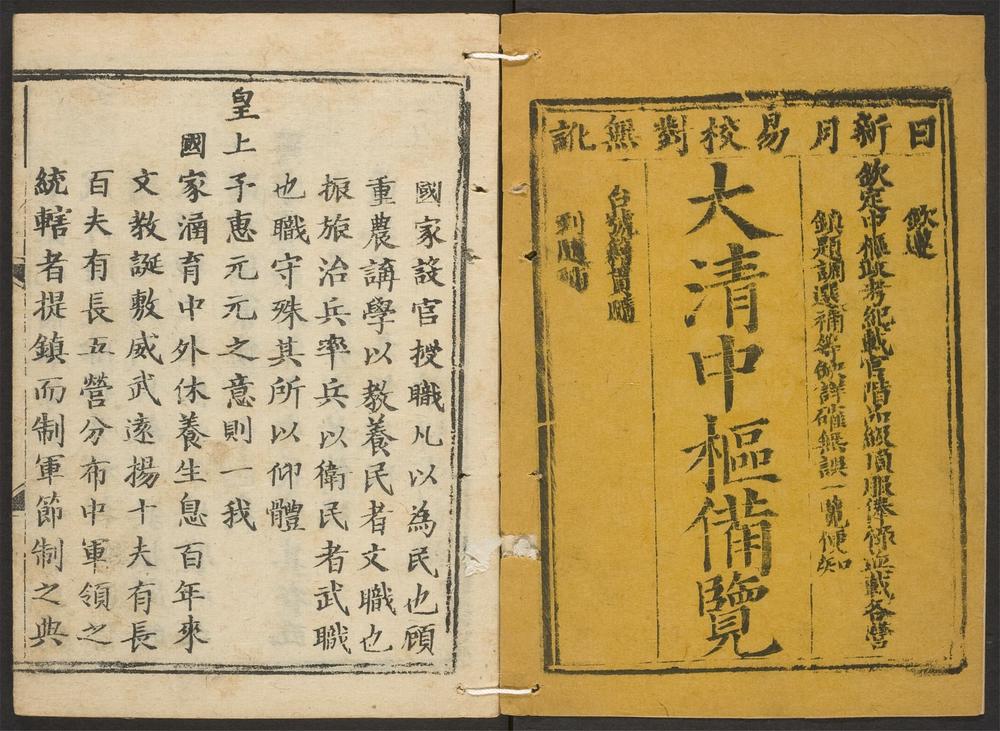 日新月易校對無訛
欽遵
欽定中樞政考紀載官階品級頂服俸祿並載各營
鎮題調選補等詳確無誤一覽便知
大清中樞備覽
台號籍貫隨
到隨
國家設官授職凡以為民也顧
重農講學以教養民者文職也
振旅治兵率兵以衛民者武職
也職守殊其所以仰體
皇上子惠元元之意則一我
國家涵育中外休養生息百年來
文教誕敷威武遠揚十夫有長
百夫有長五營分布中軍領之
統轄者提鎮而制軍節制之典